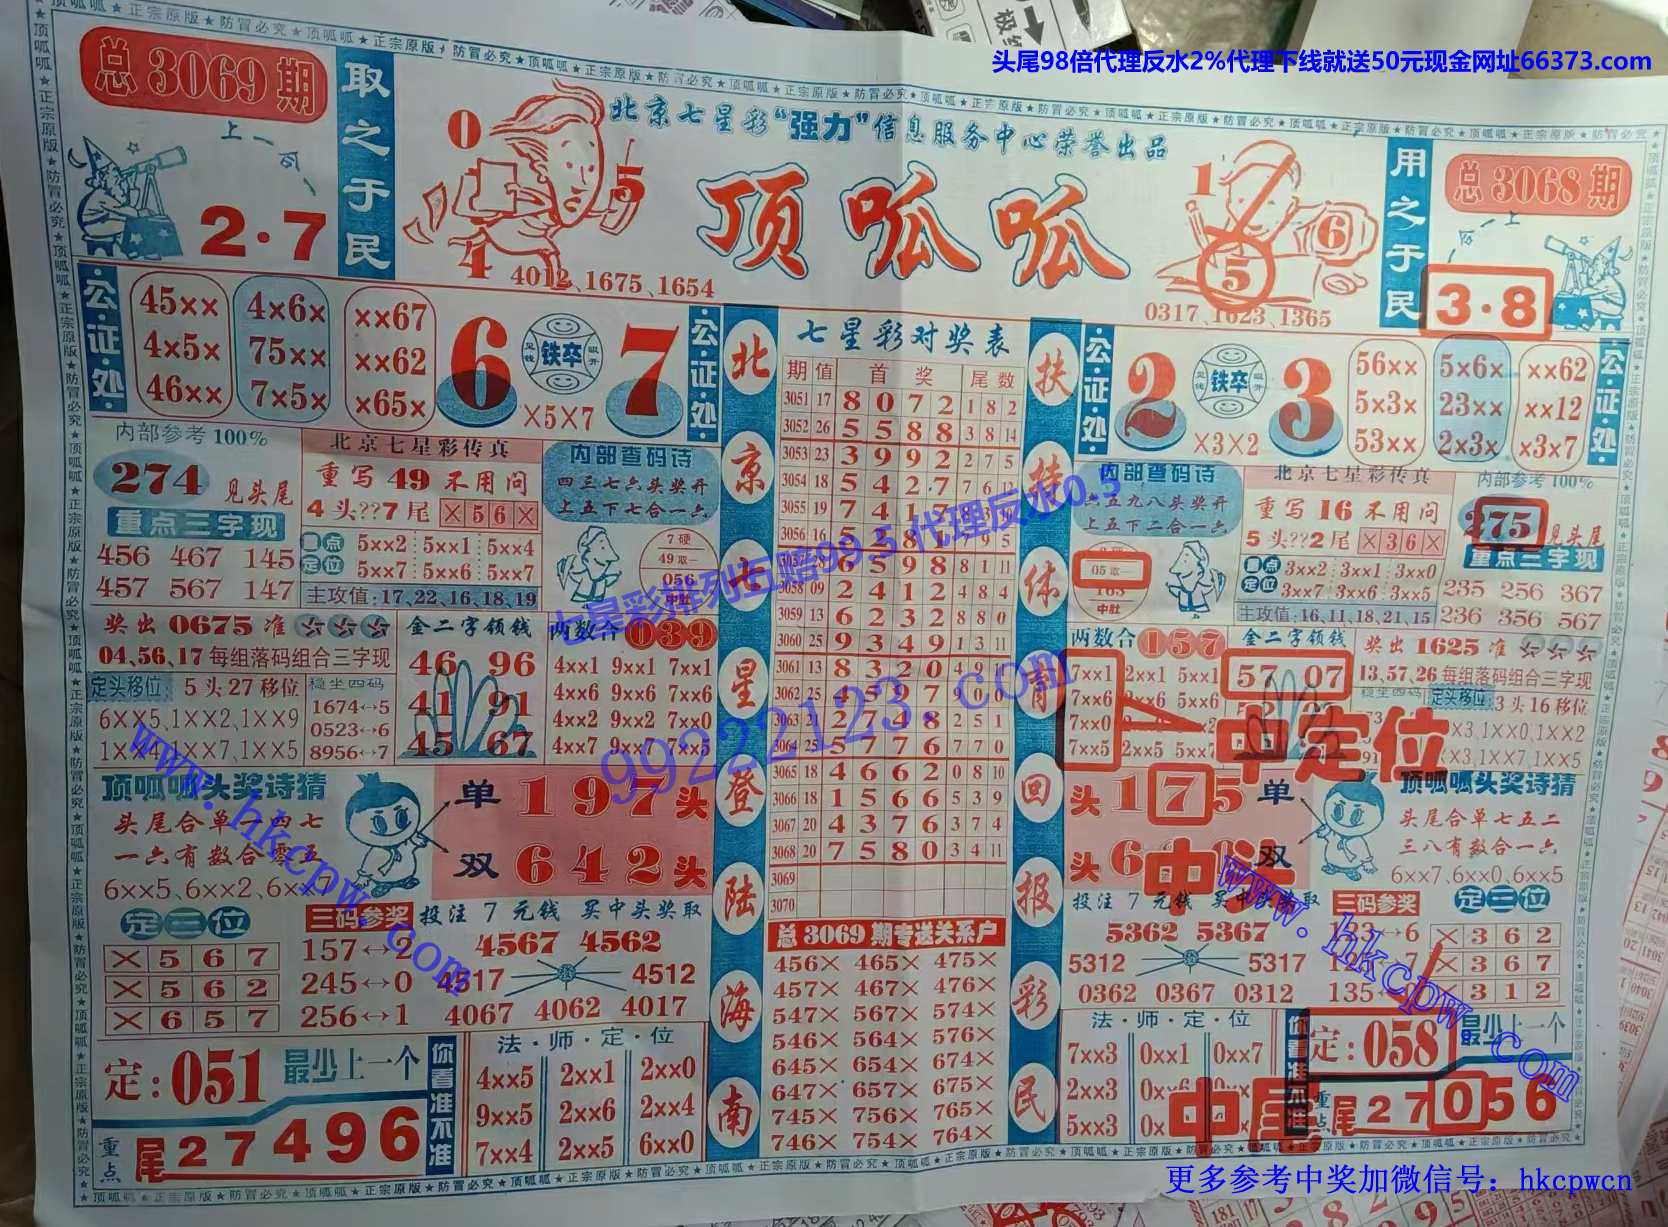 头尾98倍代理反水2%代理下线就送50元现金网址66373.com
总3069期
上一
2·7
取之于民
0
5
4
4012、1675、1654
北京七星彩“强力”信息服务中心荣誉出品
顶呱呱
1
6
5
0317、1623、1365
用之于民
总3068期
3·8
公·证·处
45×× 4×6× ××67
4×5× 75×× ××62
46×× 7×5× ×65×
6 铁卒 7
×5×7
公·证·处
内部参考100%
274 见头尾
重点三字现
456 467 145
457 567 147
北京七星彩传真
重写49不用问
4头??7尾 ×56×
重点定位
5××2 5××1 5××4
5××7 5××6 5××7
主攻值:17,22,16,18,19
内部查码诗
四三七六头奖开
上五下七合一六
7硬
49取一
056
中肚
奖出0675准
04,56,17每组落码组合三字现
定头移位: 5头27移位
6××5,1××2,1××9
稳坐四码
1674↔5
0523↔6
8956↔7
金二字领钱
46 96
41 91
45 67
两数合 039
4××1 9××1 7××1
4××6 9××6 7××6
4××2 9××2 7××0
4××7 9××7 7××5
顶呱呱头奖诗猜
头尾合单一四七
一六有数合零五
6××5、6××2、6××7
单 197头
双 642头
定三位
×567
×562
×657
三码参奖
157↔2
245↔0
256↔1
投注7元钱 买中头奖取
4567 4562
4517 4512
4067 4062 4017
定:051 最少上一个
重点 尾27496
你看准不准
法·师·定·位
4××5 2××1 2××0
9××5 2××6 2××4
7××4 2××5 6××0
北京七星登陆海南
七星彩对奖表
期 值 首奖 尾数
3051 17 8072 1 8 2
3052 26 5588 3 8 14
3053 23 3992 2 7 5
3054 18 5427 7 6 12
3055 19 7417
3056 16 5281 9 5
28 6598 8 1 11
3058 09 2412 4 8 4
3059 13 6232 8 8 0
3060 25 9349 1 3 11
3061 13 8320 4 9
3062 25 9 0 0
3063 21 2748 2 5 1
3064 25 5776 7 7 0
3065 18 4662 0 8 10
3066 18 1566 5 3 9
3067 20 4376 3 7 4
3068 20 7580 3 4 11
3069
3070
总3069期专送关系户
456× 465× 475×
457× 467× 476×
547× 567× 574×
546× 564× 576×
645× 654× 674×
647× 657× 675×
745× 756× 765×
746× 754× 764×
扶持体育回报彩民
公·证·处
2 铁卒 3
×3×2
56×× 5×6× ××62
5×3× 23×× ××12
53×× 2×3× ×3×7
公·证·处
内部查码诗
六五九八头奖开
上五下二合一六
05取一
163
中肚
北京七星彩传真
重写16不用问
5头??2尾 ×36×
重点定位
3××2 3××1 3××0
3××7 3××6 3××5
主攻值:16,11,18,21,15
内部参考100%
275 见头尾
重点三字现
235 256 367
236 356 567
两数合 157
7××1 2××1 5××1
7××6
7××0
7××5 2××5 5××7
金二字领钱
57 07
中定位
奖出1625准
13,57,26每组落码组合三字现
定头移位: 3头16移位
头175单
中头
双
顶呱呱头奖诗猜
头尾合单七五二
三八有数合一六
6××7,6××0,6××5
投注7元钱
5362 5367
5312 5317
0362 0367 0312
三码参奖
133↔6
135
定三位
×362
×367
312
法·师·定·位
7××3 0××1 0××7
2××3
5××3
中尾
定:058 最少上一个
重点 尾27056
七星彩排列五赔99.5代理反水0.5
99222123.com
www.hkcpw.com
www.hkcpw.com
更多参考中奖加微信号：hkcpwcn